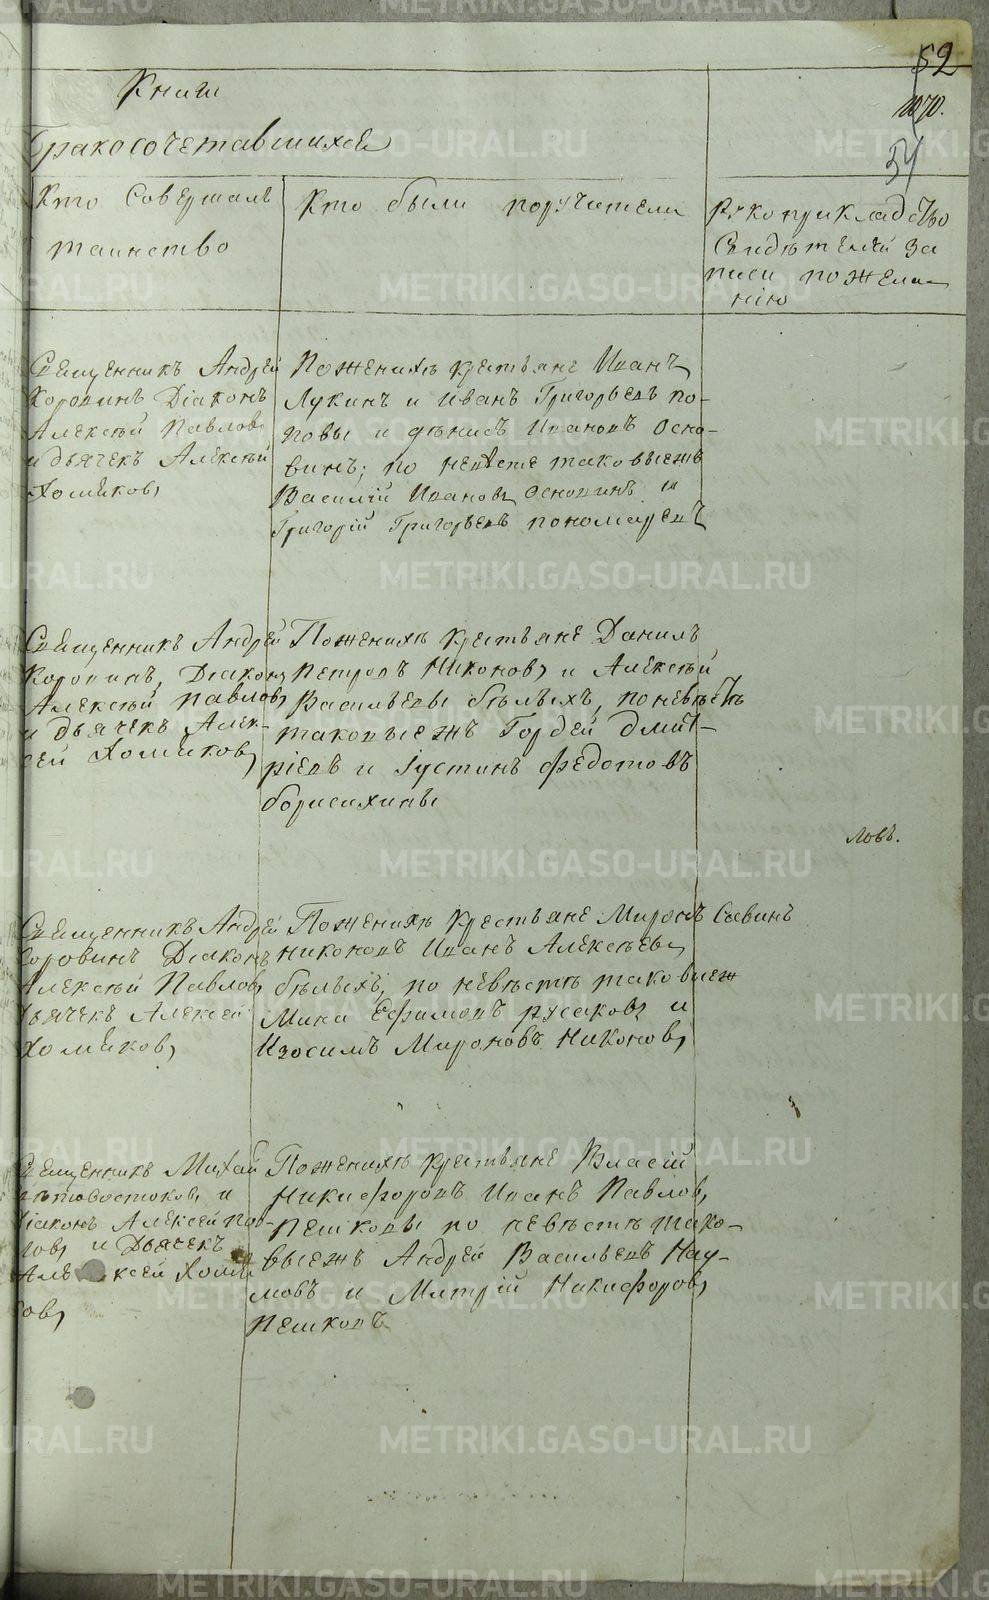 52
1070.
54
Книги
Бракосочетавшихся
Кто Совершалъ
таинство
Кто были поручители
Рукоприкладство
Свидѣтелей за
писи пожела
нію
Священникъ Андрей
Коровинъ Діаконъ
Алексѣй Павловъ
и дьячекъ Алексѣй
Хомяковъ
Поженихѣ крестьяне Иванъ
Лукинъ и Иванъ Григорьевъ по-
повы и Денисъ Ивановъ Осно-
винъ; по невѣсте таковыежъ
Василій Ивановъ Основинъ и
Григорій Григорьевъ пономаревъ
Священникъ Андрей
Коровинъ, Діаконъ
Алексѣй Павловъ
и дьячекъ Алек-
сей Хомяковъ
Поженихѣ крестьяне Данилъ
Петровъ Никоновъ и Алексѣй
Васильевы бѣлыхъ, поневѣстѣ
таковыежъ Гордей Дмит-
ріевъ и Іустинъ Федотовъ
борисихины
ловъ.
Священникъ Андрей
Коровинъ Діаконъ
Алексѣй Павловъ
дьячекъ Алексѣй
Хомяковъ
Поженихѣ Крестьяне Миронъ Савинъ
Никоновъ Иванъ Алексѣевъ
бѣлыхъ, по невѣстѣ таковыеж
Мина Ефимовъ русаковъ и
Изосимъ Мироновъ Никоновъ
Священникъ Михаи
и
Діаконъ Алексей Пав-
ловъ и Дьячекъ
Алексей Хомя
ковъ
Поженихѣ крестьяне Власій
Никифоровъ Иванъ Павловъ
Пешковы по невѣстѣ тако-
выежъ Андрей Васильевъ Нау-
мовъ и Митрій Никифоровъ
Пешковъ
METRIKI.GASO-URAL.RU